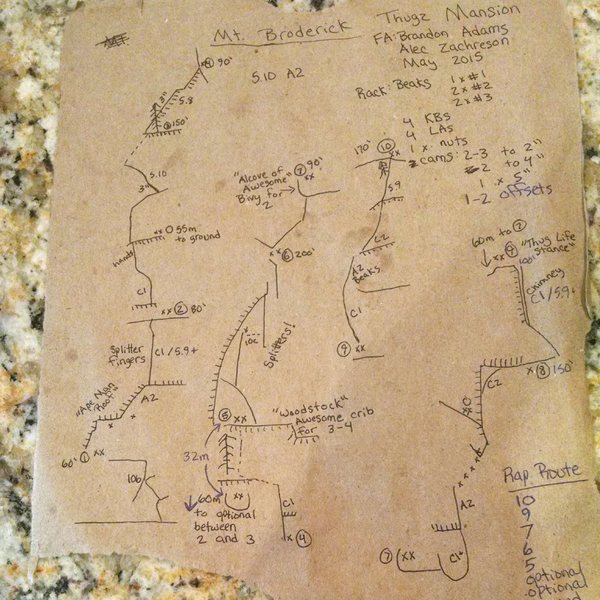 Mt. Broderick
Thugz Mansion
FA: Brandon Adams
Alec Zachreson
May 2015
5.10 A2
Rack: Beaks 1x#1
2x#2
2x#3
4 KBs
4 LAs
1 x nuts
2 cams: 2-3 to 2"
2 to 4"
1 x 5"
1-2 offsets
④ 90'
3"
5.8
③ 150'
5.10
3"
xx O 55m
to ground
hands
C1
xx ② 80'
Splitter
fingers
C1/5.9+
"Ape Man
Roof"
A2
60' ① xx
10b
"Alcove of
Awesome"
Bivy for
2
⑦ 90'
xx
xx
⑥ 200'
10c
Splitters!
⑤ xx
"Woodstock"
Awesome crib
for 3-4
32m
xx
60m
to optional
between
2 and 3
C1
x ④
170' ⑩
xx
5.9
C2
A2
Beaks
C1
⑨ xx
60m to ⑦
xx ⑨ "Thug Life
Stance"
100'
Chimney
C1/5.9+
x ⑧ 150'
C2
A2
⑦ xx
C1+
Rap Route
10
9
7
6
5
optional
optional